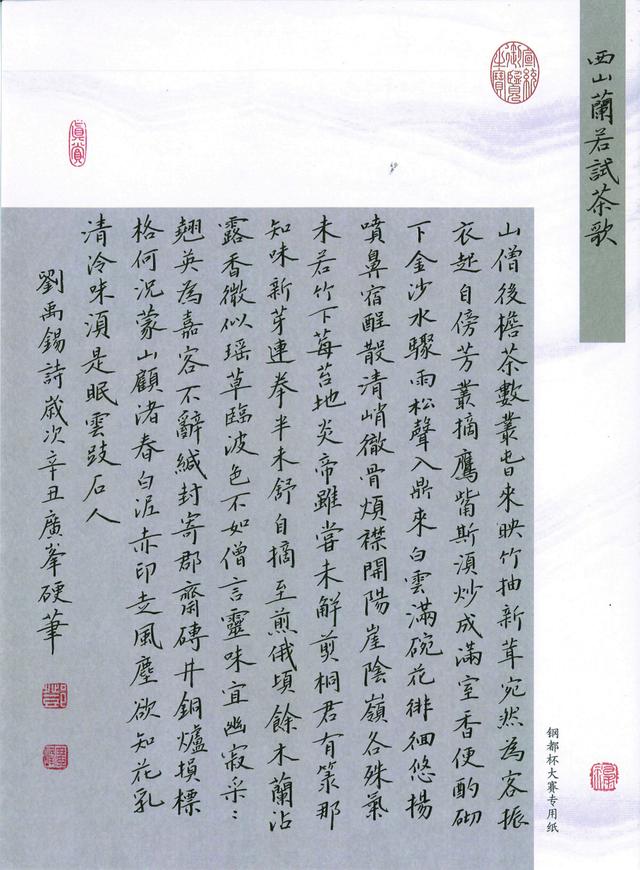 西山蘭若試茶歌
山僧後檐茶數叢春來映竹抽新茸宛然為客振
衣起自傍芳叢摘鷹觜斯須炒成滿室香便酌砌
下金沙水驟雨松聲入鼎來白雲滿碗花徘徊悠揚
噴鼻宿酲散清峭徹骨煩襟開陽崖陰嶺各殊氣
未若竹下莓苔地炎帝雖嘗未解煎桐君有箓那
知味新芽連拳半未舒自摘至煎俄頃餘木蘭沾
露香微似瑶草臨波色不如僧言靈味宜幽寂采〻
翹英為嘉客不辭緘封寄郡齋磚井銅爐損標
格何況蒙山顧渚春白泥赤印走風塵欲知花乳
清泠味須是眠雲跂石人
劉禹錫詩歲次辛丑廣峯硬筆
钢都杯大赛专用纸
宣統御覽之寶
真賞